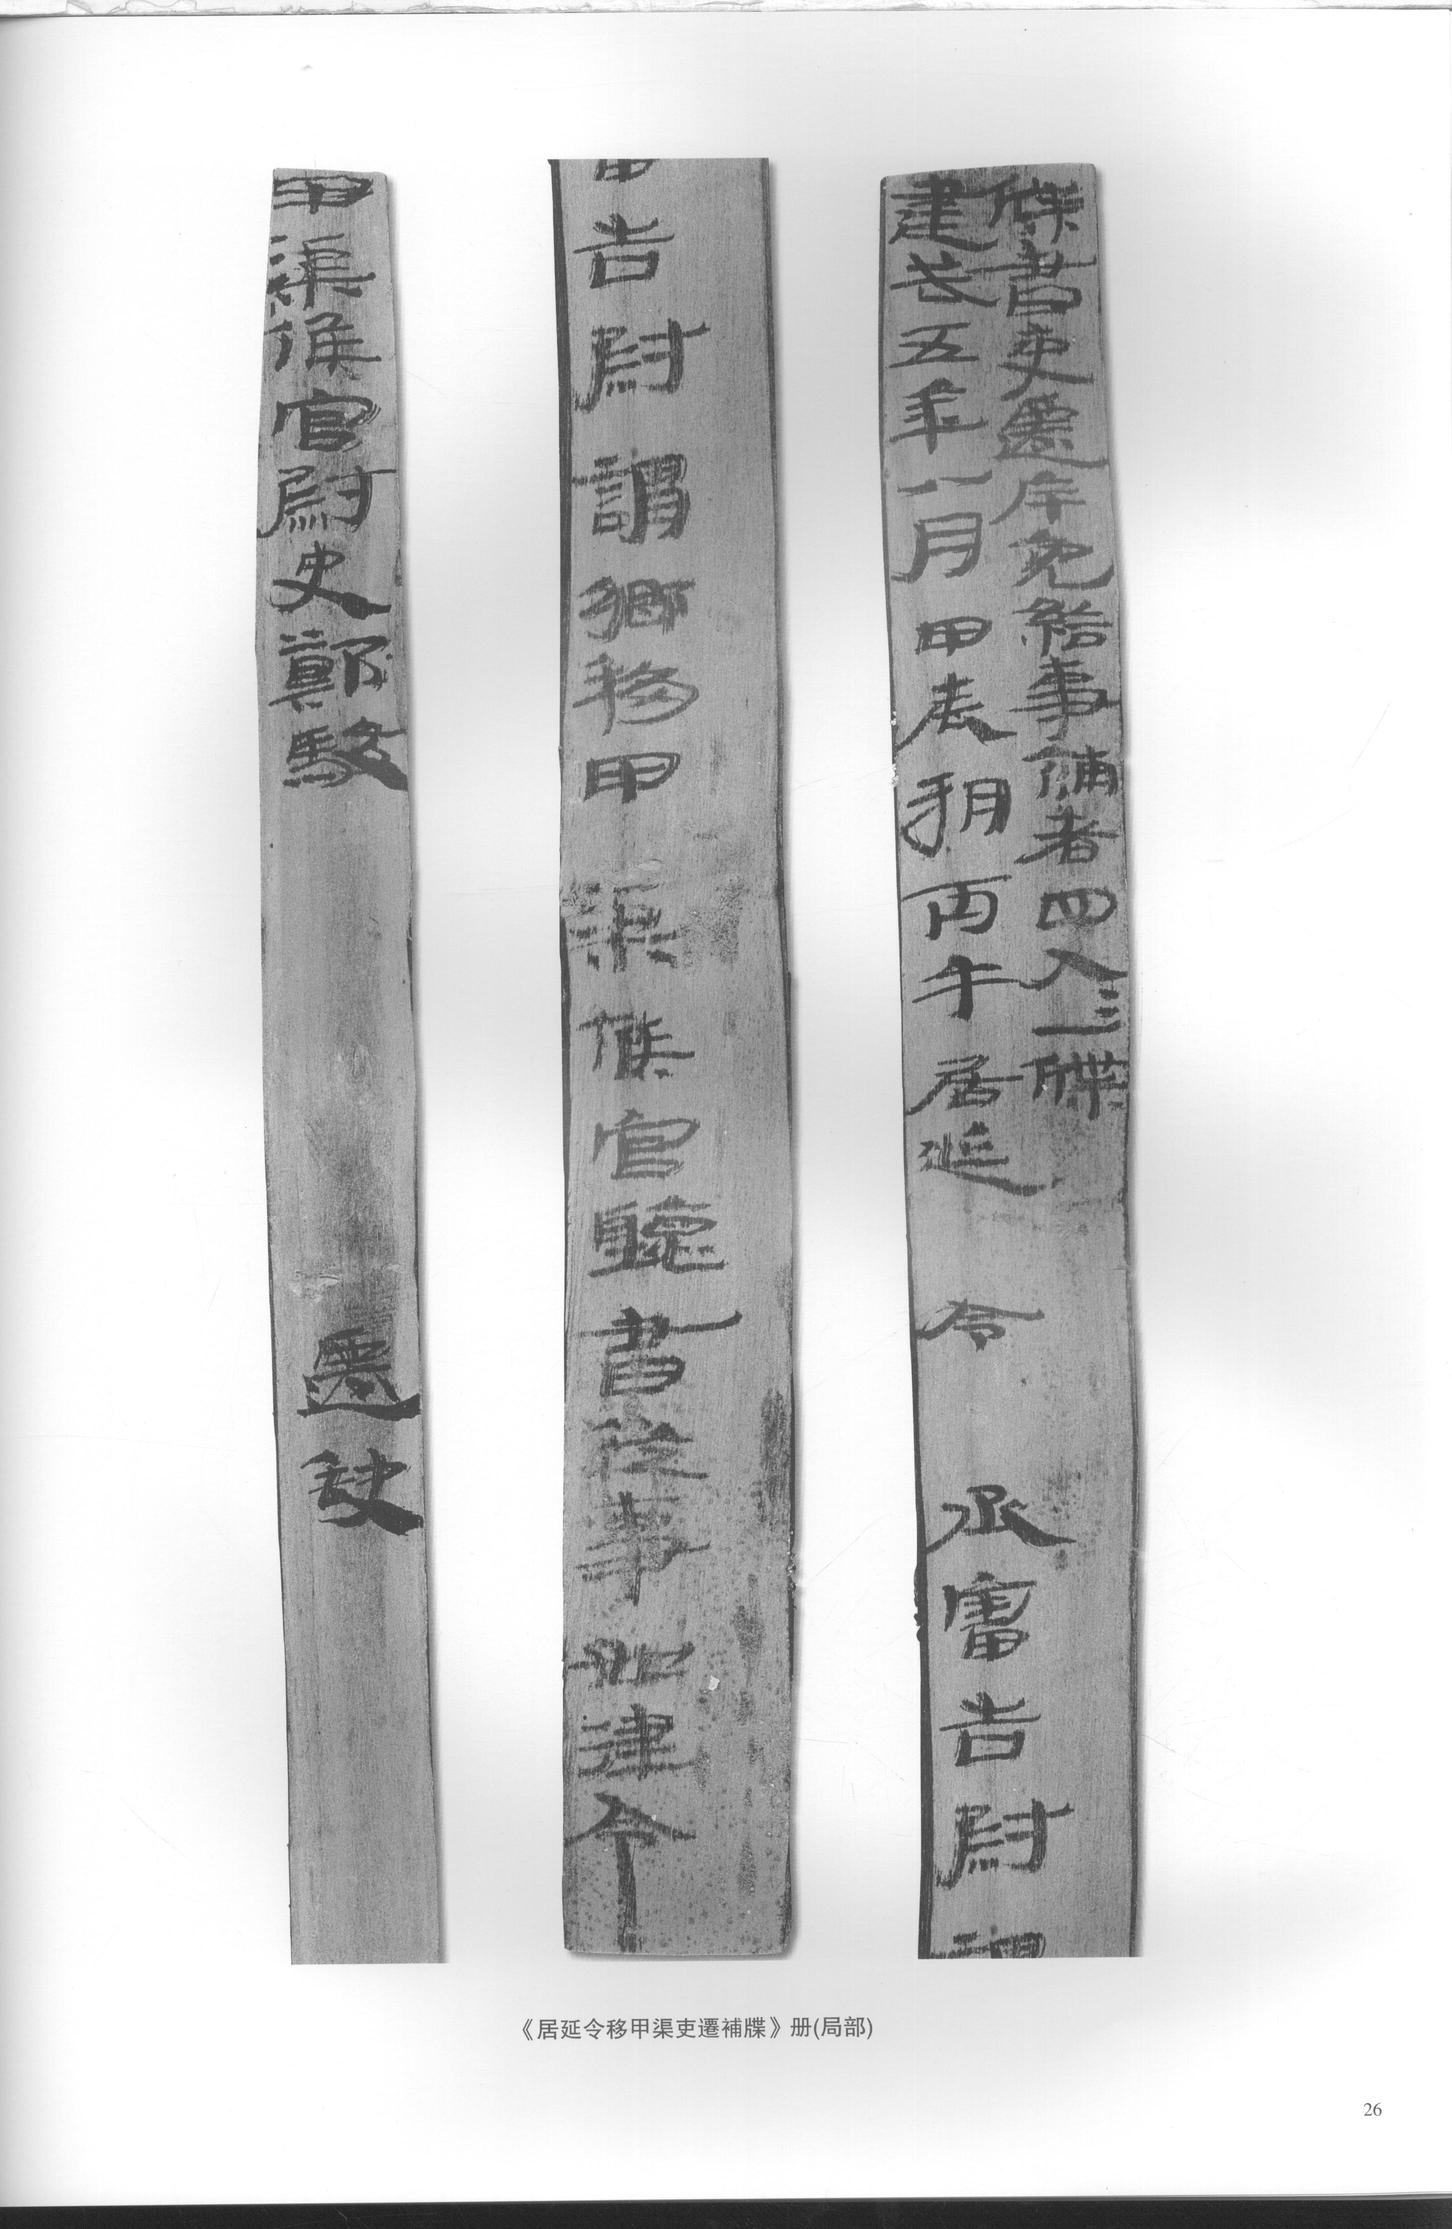 牒書吏遷斥免給事補者四人=一牒
建武五年八月甲辰朔丙午居延令 丞審告尉謂
審告尉謂鄉移甲渠候官聽書從事如律令
甲渠候官尉史鄭駿 遷缺
《居延令移甲渠吏遷補牒》册(局部)
26